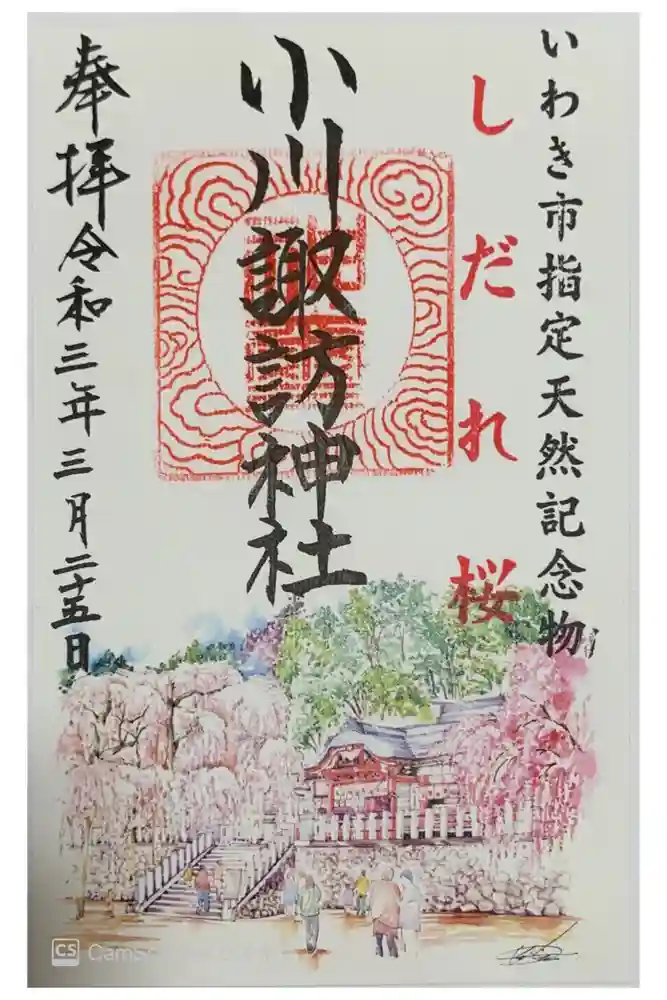 いわき市指定天然記念物
しだれ桜
小川諏訪神社
奉拝令和三年三月二十五日
CS